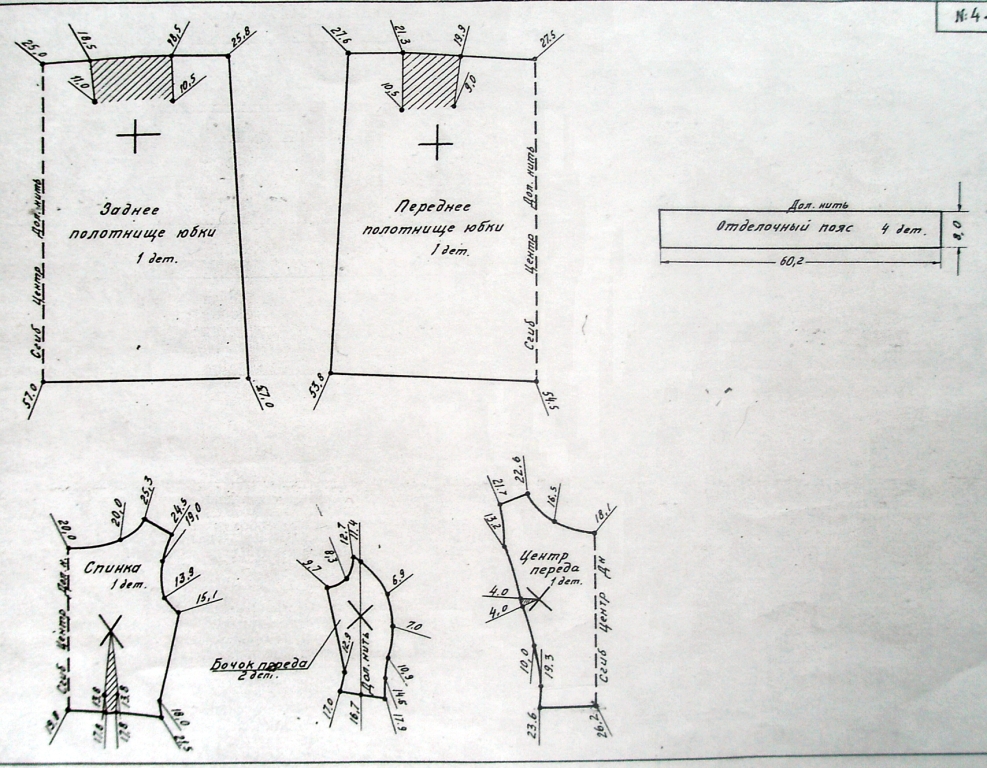 № 4
25,0
18,5
18,5
25,8
11,0
10,5
Сгиб Центр Дол. нить
Заднее
полотнище юбки
1 дет.
57,0
57,0
27,6
21,3
19,9
27,5
10,5
9,0
Переднее
полотнище юбки
1 дет.
Сгиб Центр Дол. нить
53,8
54,5
Дол. нить
Отделочный пояс 4 дет.
8,0
60,2
20,0
20,0
25,3
24,5
19,0
Спинка
1 дет.
13,9
15,1
Сгиб Центр Дол н.
13,8
13,8
19,8
17,8
17,8
18,0
21,5
9,7
12,7
11,4
6,9
7,0
12,9
Бочок переда
2 дет.
Дол. нить
10,9
14,9
17,9
17,0
16,7
21,7
22,6
16,5
18,1
13,2
Центр
переда
1 дет.
4,0
4,0
Сгиб Центр Дн
10,0
19,3
23,6
26,2